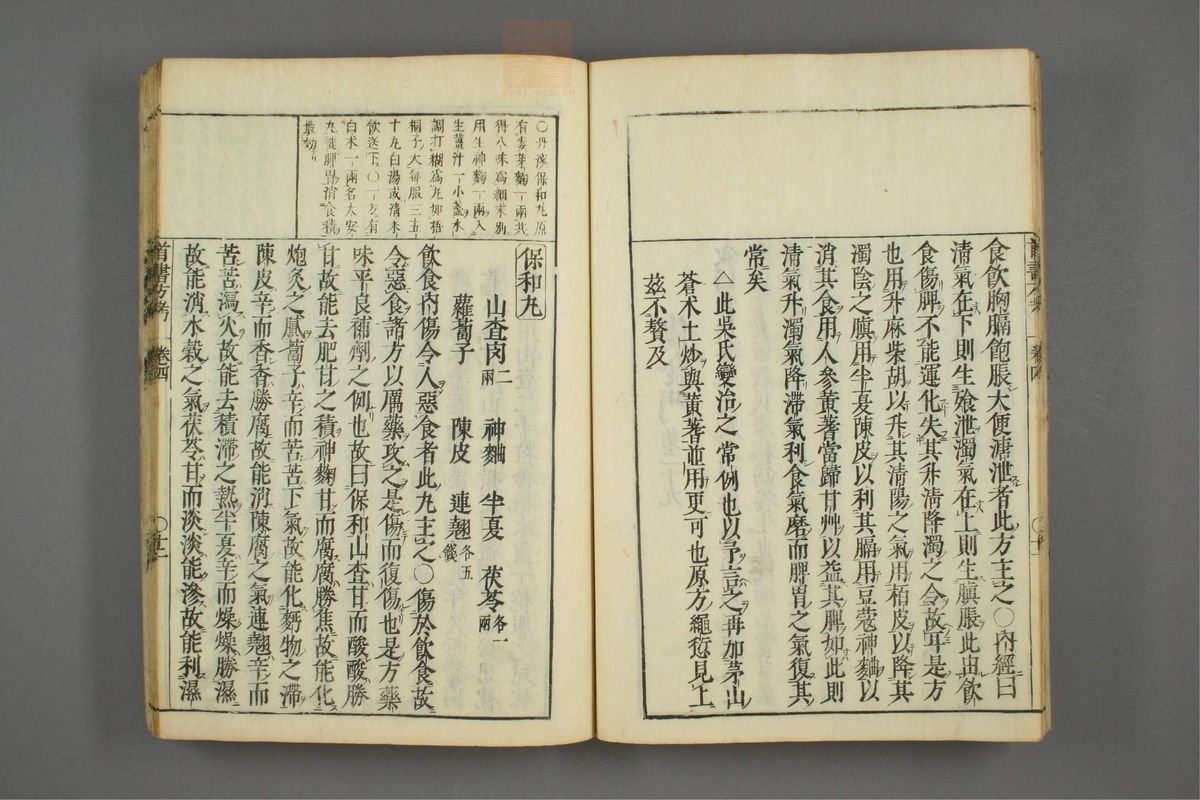 食飲胸膈飽脹大便溏泄者此方主之○內經曰
清氣在下則生飱泄濁氣在上則生䐜脹此由飲
食傷脾不能運化失其升清降濁之令故耳是方
也用升麻柴胡以升其清陽之氣用栢皮以降其
濁陰之䐜用半夏陳皮以利其膈用豆蔻神麯以
消其食用人參黃蓍當歸甘艸以益其脾如此則
清氣升濁氣降滯氣利食氣磨而脾胃之氣復其
常矣
△此吳氏變治之常例也以予言之再加茅山
蒼朮土炒與黃蓍並用更可也原方繩愆見上
茲不贅及
○丹溪保和丸原
有麥芽麴一兩共
得八味爲細末別
用生神麴一兩入
生薑汁一小盞水
調打糊爲丸如梧
桐子大每服三五
十丸白湯或清米
飲送下○一方有
白朮一兩名大安
丸健脾胃消食積
最効
保和丸
山査肉二兩 神麯 半夏 茯苓各一兩
蘿蔔子 陳皮 連翹各五錢
飲食內傷令人惡食者此丸主之○傷於飲食故
令惡食諸方以厲藥攻之是傷而復傷也是方藥
味平良補劑之例也故曰保和山査甘而酸酸勝
甘故能去肥甘之積神麴甘而腐腐勝焦故能化
炮炙之膩蔔子辛而苦苦下氣故能化麪物之滯
陳皮辛而香香勝腐故能消陳腐之氣連翹辛而
苦苦瀉火故能去積滯之熱半夏辛而燥燥勝濕
故能消水穀之氣茯苓甘而淡淡能滲故能利濕
首書方考 卷四 ○廿一